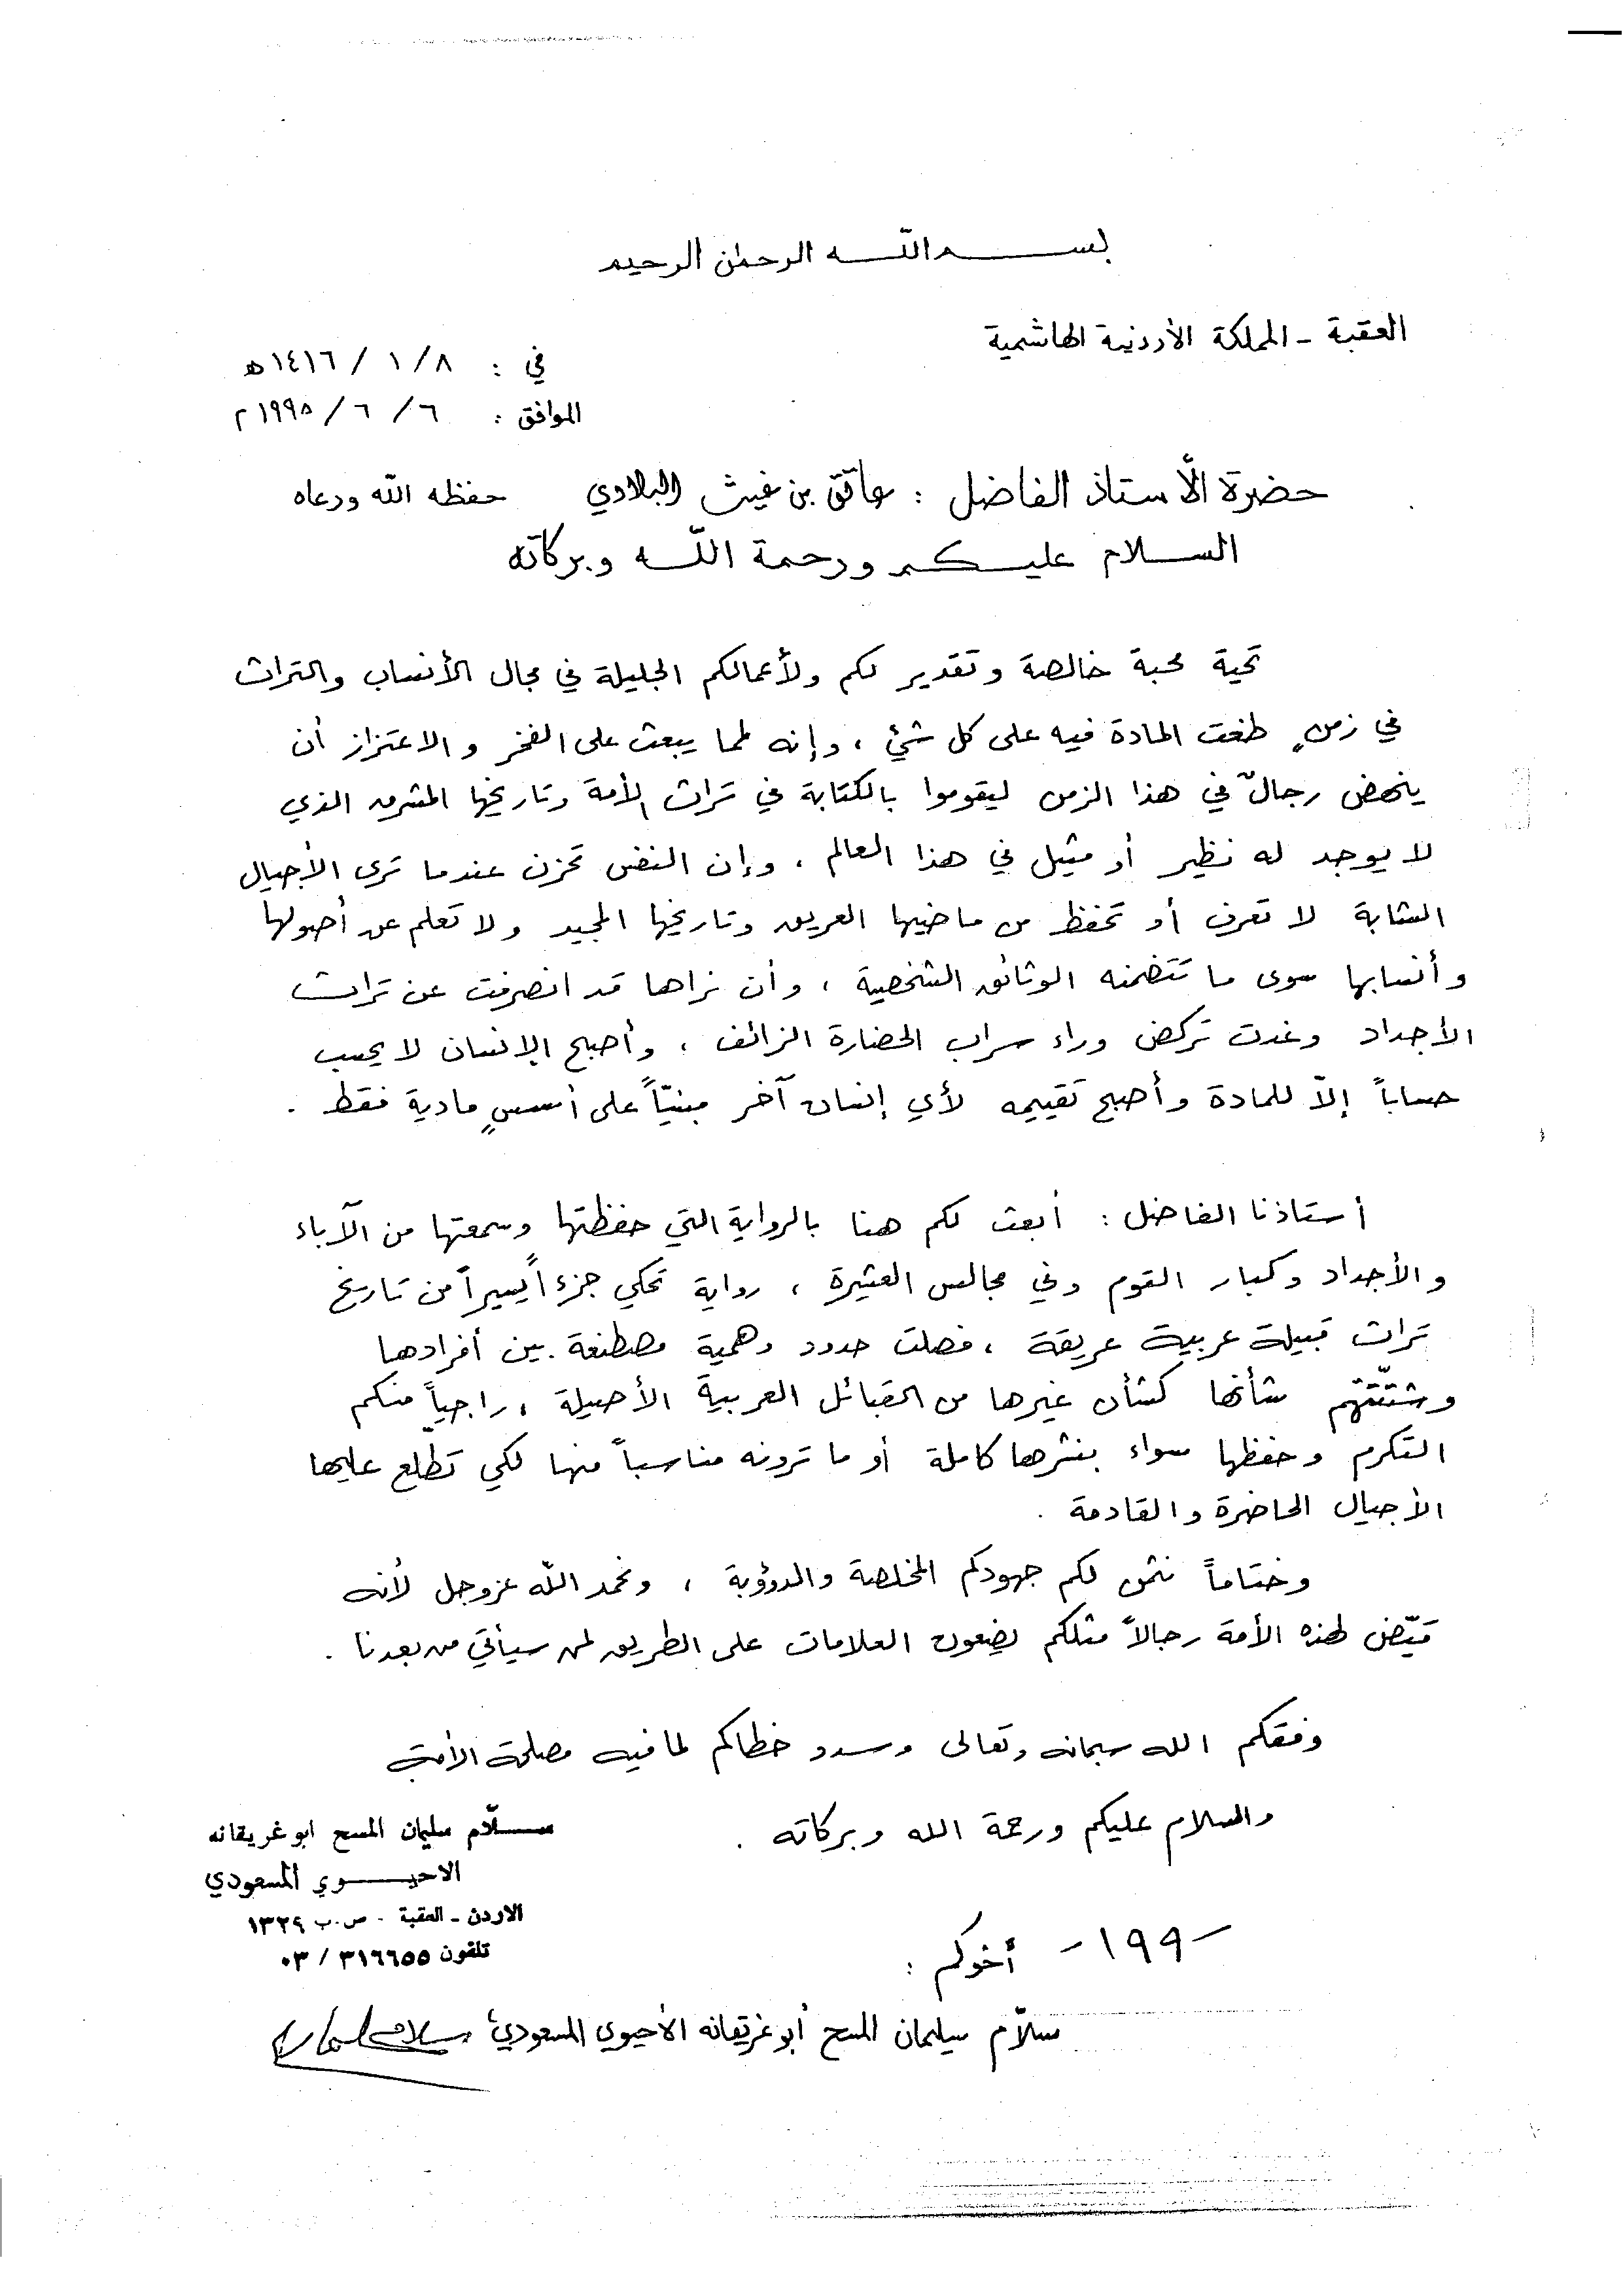 بسم الله الرحمن الرحيم
العقبة - المملكة الأردنية الهاشمية
في : ٨ / ١ / ١٤١٦ه
الموافق : ٦ / ٦ / ١٩٩٥م
حضرة الأستاذ الفاضل : عاتق بن غيث البلادي حفظه الله ورعاه
السلام عليكم ورحمة الله وبركاته
تحية محبة خالصة وتقدير لكم ولأعمالكم الجليلة في مجال الأنساب والتراث
في زمنٍ طغت المادة فيه على كل شيء ، وإنه لمما يبعث على الفخر والاعتزاز أن
ينهض رجالٌ في هذا الزمن ليقوموا بالكتابة في تراث الأمة وتاريخها المشرق الذي
لا يوجد له نظير أو مثيل في هذا العالم . وإن النفس تحزن عندما ترى الأجيال
الشابة لا تعرف أو تحفظ من ماضيها العريق وتاريخها المجيد ولا تعلم عن أصولها
وأنسابها سوى ما تتضمنه الوثائق الشخصية ، وأن نراها قد انصرفت عن تراث
الأجداد وغدت تركض وراء سراب الحضارة الزائف ، وأصبح الإنسان لا يحسب
حساباً إلاّ للمادة وأصبح تقييمه لأي إنسان آخر مبنيّاً على أسسٍ مادية فقط .
أستاذنا الفاضل : أبعث لكم هنا بالرواية التي حفظتها وسمعتها من الآباء
والأجداد وكبار القوم وفي مجالس العشيرة ، رواية تحكي جزءاً يسيراً من تاريخ
تراث قبيلة عربية عريقة ، فصلت حدود وهمية مصطنعة بين أفرادها
وشتّتتهم شأنها كشأن غيرها من القبائل العربية الأصيلة ، راجياً منكم
التكرم وحفظها سواء بنشرها كاملة أو ما ترونه مناسباً منها لكي تطّلع عليها
الأجيال الحاضرة والقادمة .
وختاماً نثمن لكم جهودكم المخلصة والدؤوبة ، ونحمد الله عزوجل لأنه
قيّض لهذه الأمة رجالاً مثلكم يضعون العلامات على الطريق لمن سيأتي من بعدنا .
وفقكم الله سبحانه وتعالى وسدد خطاكم لما فيه مصلحة الأمة
والسلام عليكم ورحمة الله وبركاته .
سلّام سليمان المسح ابو غريقانه
الاحيوي المسعودي
الاردن - العقبة - ص.ب ١٣٢٩
تلفون ٣١٦٦٥٥ / ٠٣
- ١٩٩ - أخوكم :
سلاّم سليمان المسح أبو غريقانه الأحيوي المسعودي